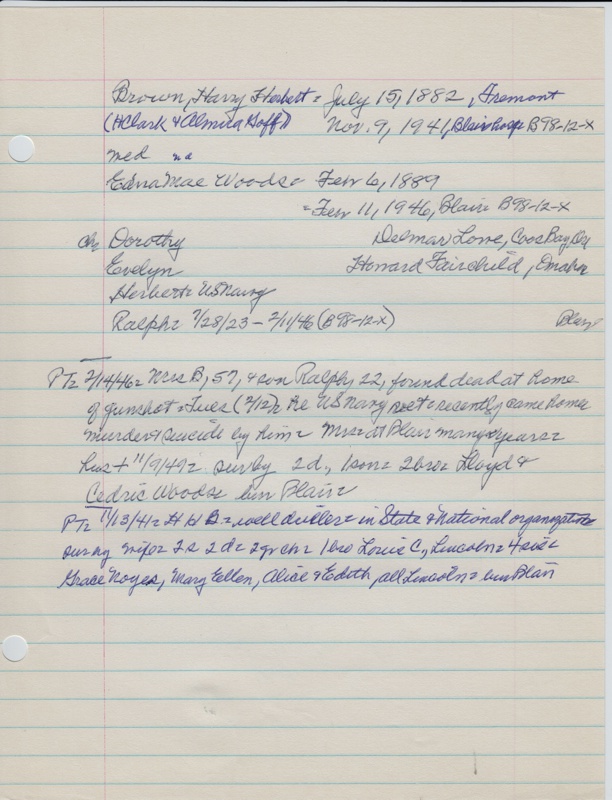 Brown, Harry Herbert = July 15, 1882, Fremont
(H Clark & Almira Goff)) Nov. 9, 1941, Blair hosp B98-12-X
med na
Edna Mae Woods = Feb 6, 1889
= Feb 11, 1946, Blair = B98-12-X
ch Dorothy Delmar Lowe, Coos Bay, Or
Evelyn Howard Fairchild, Omaha
Herbert = US Navy
Ralph = 7/28/23 – 2/11/46 (B98-12-X) Blair
PT = 2/14/46 = Mrs B, 57, & son Ralph, 22, found dead at home
of gunshot = Tues (2/12) = he US Navy vet & recently came home
murder & suicide by him = Mrs at Blair many years =
hus + 11/9/49 = sur by 2 d, 1 son = 2 bro = Lloyd &
Cedric Woods = bur Blair =
PT = 11/13/41 = H H B = well driller = in State & national organization
sur by wife = 2 s 2 d = 2 gr ch = 1 bro Louie C., Lincoln = 4 sis =
Grace Noyes, Mary Ellen, Alice & Edith, all Lincoln = bur Blair